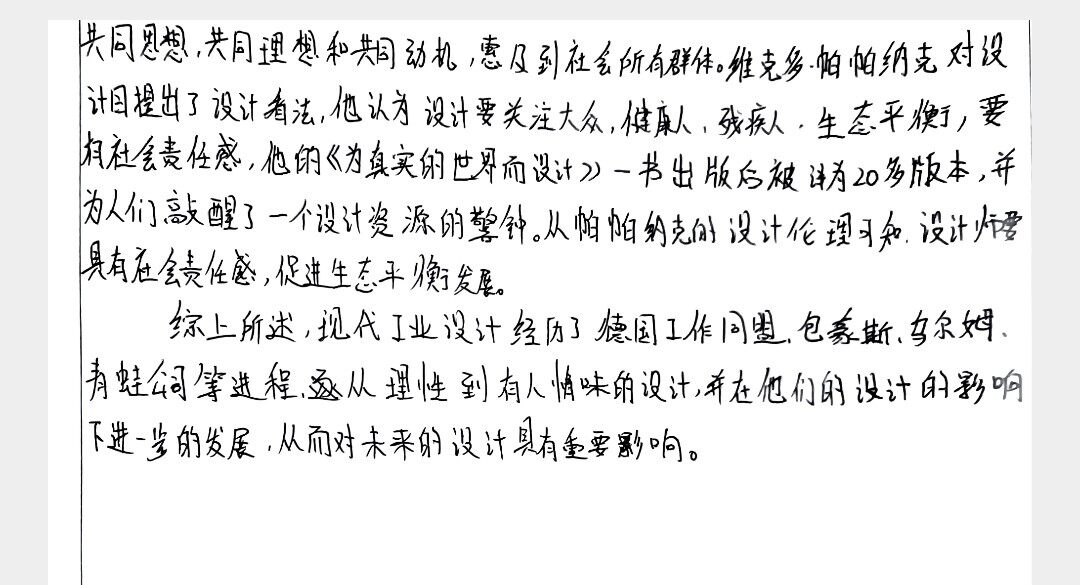 共同思想,共同理想和共同动机,惠及到社会所有群体。维克多·帕帕纳克对设
计目提出了设计看法,他认为设计要关注大众、健康人、残疾人、生态平衡,要
有社会责任感,他的《为真实的世界而设计》一书出版后被译为20多版本,并
为人们敲醒了一个设计资源的警钟。从帕帕纳克的设计伦理可知,设计师要
具有社会责任感,促进生态平衡发展。
综上所述,现代工业设计经历了德国工作同盟、包豪斯、乌尔姆、
青蛙公司等进程,逐从理性到有人情味的设计,并在他们的设计的影响
下进一步的发展,从而对未来的设计具有重要影响。